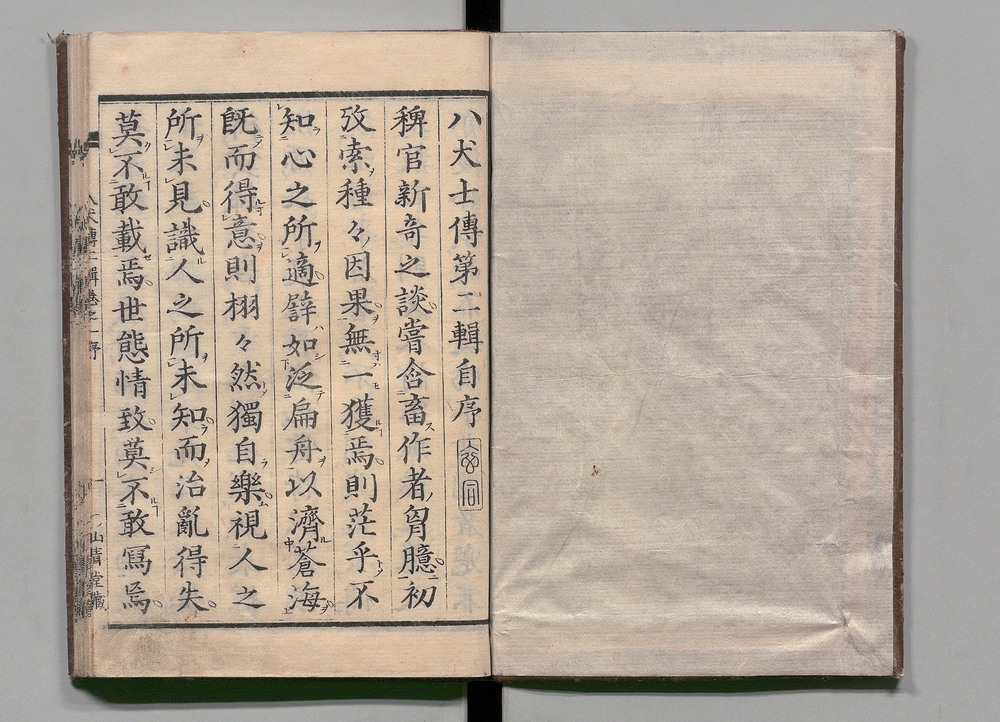 八犬士傳第二輯自序 玄同
稗官新奇之談嘗含畜作者胷臆初
攷索種々因果無一獲焉則茫乎不
知心之所適譬如泛扁舟以濟蒼海
既而得意則栩々然獨自樂視人之
所未見識人之所未知而治亂得失
莫不敢載焉世態情致莫不敢寫焉
八犬傳二輯卷之一序 一 山青堂藏